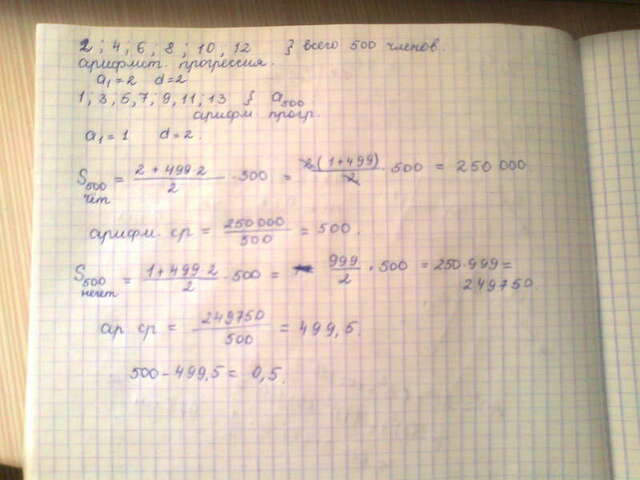 2 ; 4 ; 6 ; 8 ; 10 , 12 } всего 500 членов.
арифмет. прогрессия.
a₁=2 d=2
1 ; 3 ; 5 , 7 ; 9 , 11 ; 13 } a₅₀₀
арифм прогр.
a₁ = 1 d=2 .
S₅₀₀ чет = (2 + 499·2)/2 · 500 = 2(1+499)/2 · 500 = 250 000
арифм. ср = 250 000/500 = 500 .
S₅₀₀ нечет = (1+499·2)/2 · 500 = 999/2 · 500 = 250·999 =
249750.
ар. ср = 249750/500 = 499,5.
500 - 499,5 = 0,5.